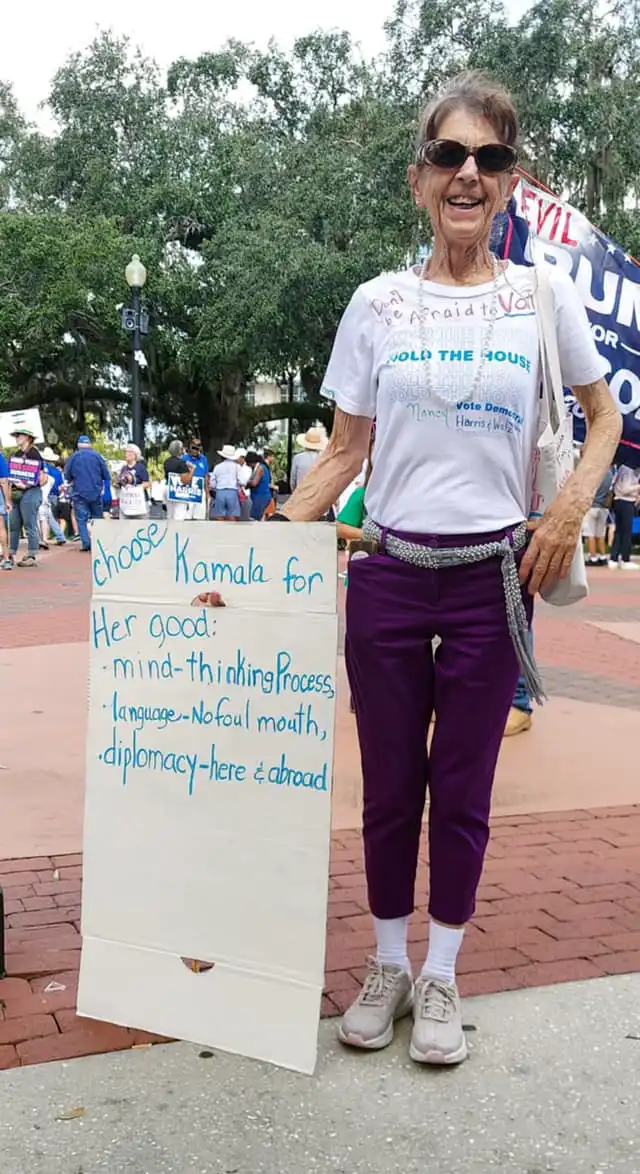 choose Kamala for
Her good:
·mind-thinking Process,
·language-No foul mouth,
·diplomacy-here & abroad
Don't
be Afraid to Vote
HOLD THE HOUSE
Nancy
Vote Democrat
Harris & Walz
EVIL
FOR
HARRIS